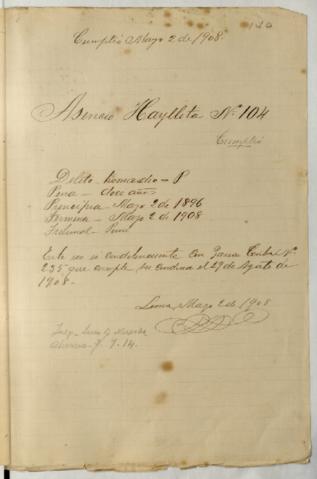 120
Cumplió Mayo 2 de 1908.
Asencio Haylleta Nº 104
Cumplió
Delito – homicidio – P
Pena – doce años
Principia – Mayo 2 de 1896
Termina – Mayo 2 de 1908
Tribunal – Puno
Este reo es
Nº
235 que cumple su condena el 29 de Agosto de
1908.
Lima, Mayo 2 de 1908
7. 14.